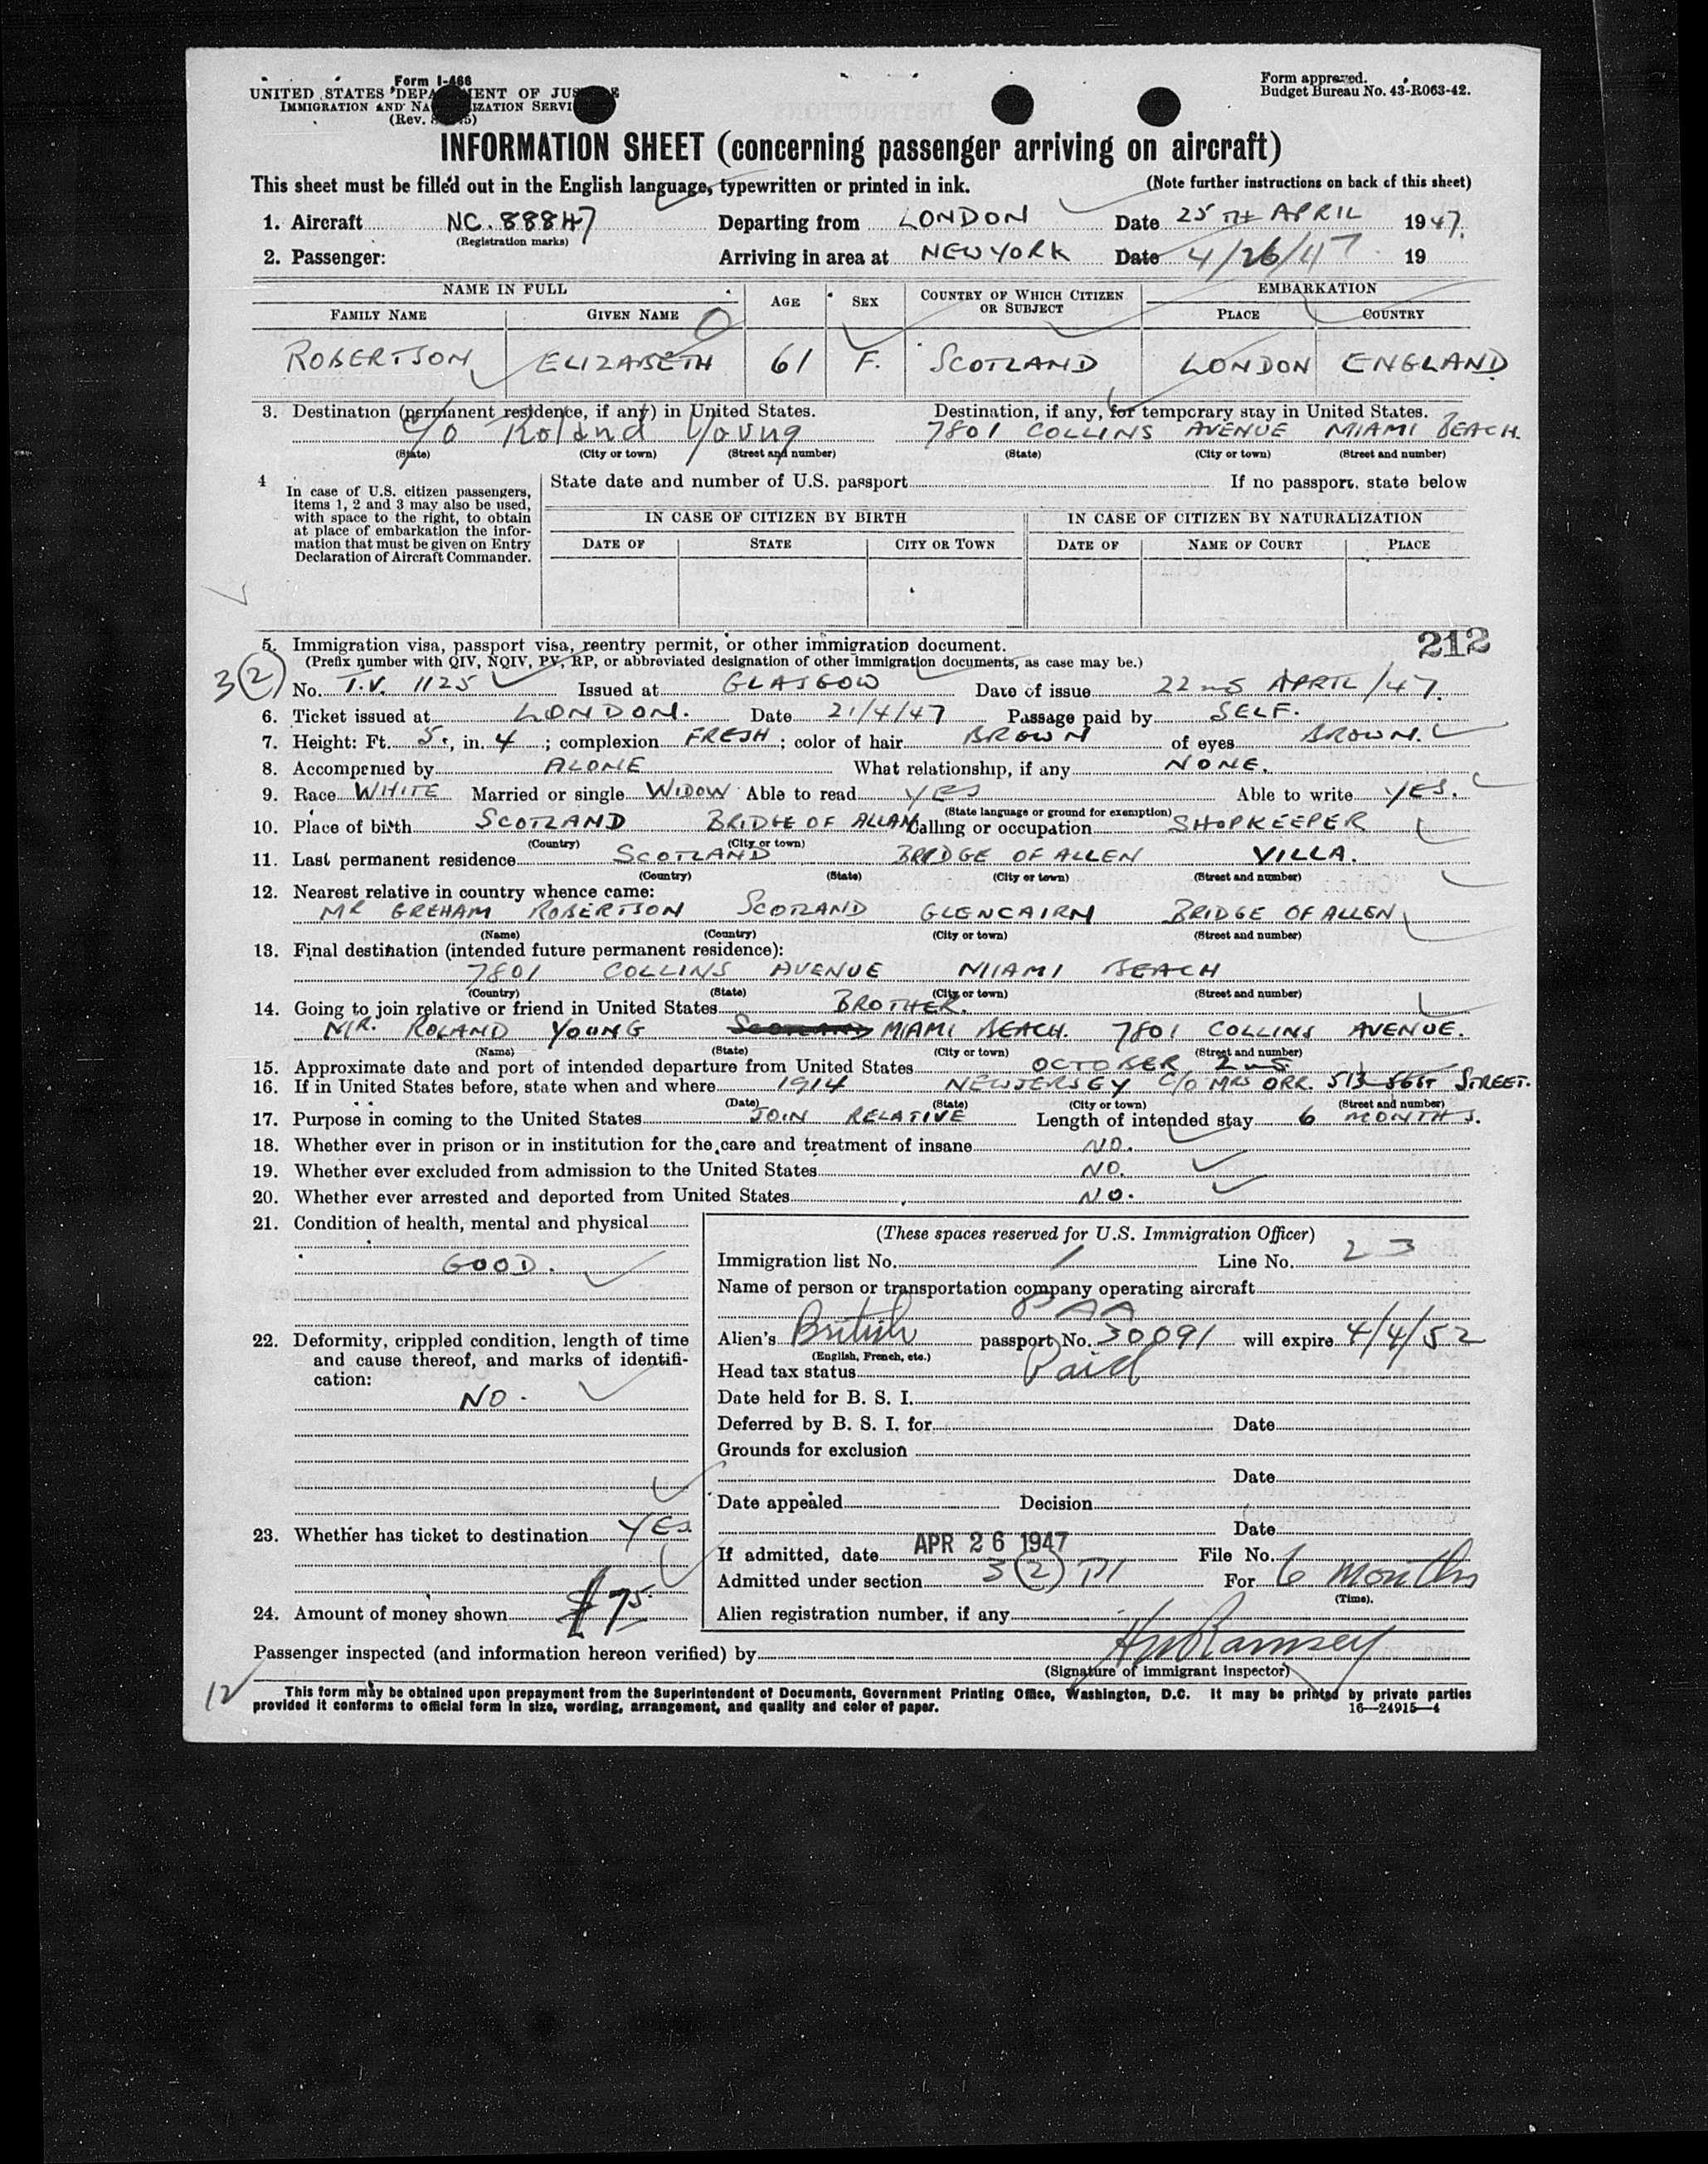 Form I-466
UNITED STATES DEPA MENT OF JUS E
IMMIGRATION AND NA IZATION SERVI
(Rev. 5)
Form approved.
Budget Bureau No. 43-R063-42.
INFORMATION SHEET (concerning passenger arriving on aircraft)
This sheet must be filled out in the English language, typewritten or printed in ink. (Note further instructions on back of this sheet)
1. Aircraft NC. 88847 Departing from LONDON Date 25TH APRIL 1947.
(Registration marks)
2. Passenger: Arriving in area at NEW YORK Date 4/26/47 19
NAME IN FULL AGE SEX COUNTRY OF WHICH CITIZEN OR SUBJECT EMBARKATION
FAMILY NAME GIVEN NAME PLACE COUNTRY
ROBERTSON ELIZABETH 61 F. SCOTLAND LONDON ENGLAND
3. Destination (permanent residence, if any) in United States. Destination, if any, for temporary stay in United States.
c/o Roland Young 7801 COLLINS AVENUE MIAMI BEACH.
(State) (City or town) (Street and number) (State) (City or town) (Street and number)
4 In case of U.S. citizen passengers, items 1, 2 and 3 may also be used, with space to the right, to obtain at place of embarkation the information that must be given on Entry Declaration of Aircraft Commander.
State date and number of U.S. passport If no passport, state below
IN CASE OF CITIZEN BY BIRTH IN CASE OF CITIZEN BY NATURALIZATION
DATE OF STATE CITY OR TOWN DATE OF NAME OF COURT PLACE
212
5. Immigration visa, passport visa, reentry permit, or other immigration document.
(Prefix number with QIV, NQIV, PV, RP, or abbreviated designation of other immigration documents, as case may be.)
3(2) No. T.V. 1125 Issued at GLASGOW Date of issue 22ND APRIL/47.
6. Ticket issued at LONDON. Date 21/4/47 Passage paid by SELF.
7. Height: Ft. 5., in. 4; complexion FRESH; color of hair BROWN of eyes BROWN.
8. Accompanied by ALONE What relationship, if any NONE.
9. Race WHITE Married or single WIDOW Able to read YES Able to write YES.
(State language or ground for exemption)
10. Place of birth SCOTLAND BRIDGE OF ALLAN Calling or occupation SHOPKEEPER
(Country) (City or town)
11. Last permanent residence SCOTLAND BRIDGE OF ALLEN VILLA.
(Country) (State) (City or town) (Street and number)
12. Nearest relative in country whence came:
MR GREHAM ROBERTSON SCOTLAND GLENCAIRN BRIDGE OF ALLEN
(Name) (Country) (City or town) (Street and number)
13. Final destination (intended future permanent residence):
7801 COLLINS AVENUE MIAMI BEACH
(Country) (State) (City or town) (Street and number)
14. Going to join relative or friend in United States BROTHER.
MR. ROLAND YOUNG SCOTLAND MIAMI BEACH. 7801 COLLINS AVENUE.
(Name) (State) (City or town) (Street and number)
15. Approximate date and port of intended departure from United States OCTOBER 2ND
16. If in United States before, state when and where 1914 NEW JERSEY C/O MRS ORR. 513 STREET.
(Date) (State) (City or town) (Street and number)
17. Purpose in coming to the United States JOIN RELATIVE Length of intended stay 6 MONTHS.
18. Whether ever in prison or in institution for the care and treatment of insane NO.
19. Whether ever excluded from admission to the United States NO.
20. Whether ever arrested and deported from United States NO.
21. Condition of health, mental and physical
GOOD.
22. Deformity, crippled condition, length of time
and cause thereof, and marks of identifi-
cation:
NO.
23. Whether has ticket to destination YES
24. Amount of money shown $75.
(These spaces reserved for U.S. Immigration Officer)
Immigration list No. 1 Line No. 23
Name of person or transportation company operating aircraft
PAA
Alien's British passport No. 30091 will expire 4/4/52
(English, French, etc.)
Head tax status Paid
Date held for B. S. I.
Deferred by B. S. I. for Date
Grounds for exclusion
Date
Date appealed Decision
Date
If admitted, date APR 26 1947 File No.
Admitted under section 3(2) P1 For 6 Months
(Time).
Alien registration number, if any
Passenger inspected (and information hereon verified) by HW Ramsey
(Signature of immigrant inspector)
12
This form may be obtained upon prepayment from the Superintendent of Documents, Government Printing Office, Washington, D.C. It may be printed by private parties
provided it conforms to official form in size, wording, arrangement, and quality and color of paper. 16—24915-4